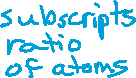 subscripts
ratio
of atoms